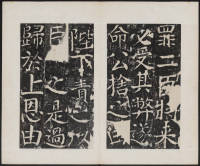 罪二臣將來
必受其弊遽
命公捨之曰
陛下責之以
臣之是過
歸於上恩由